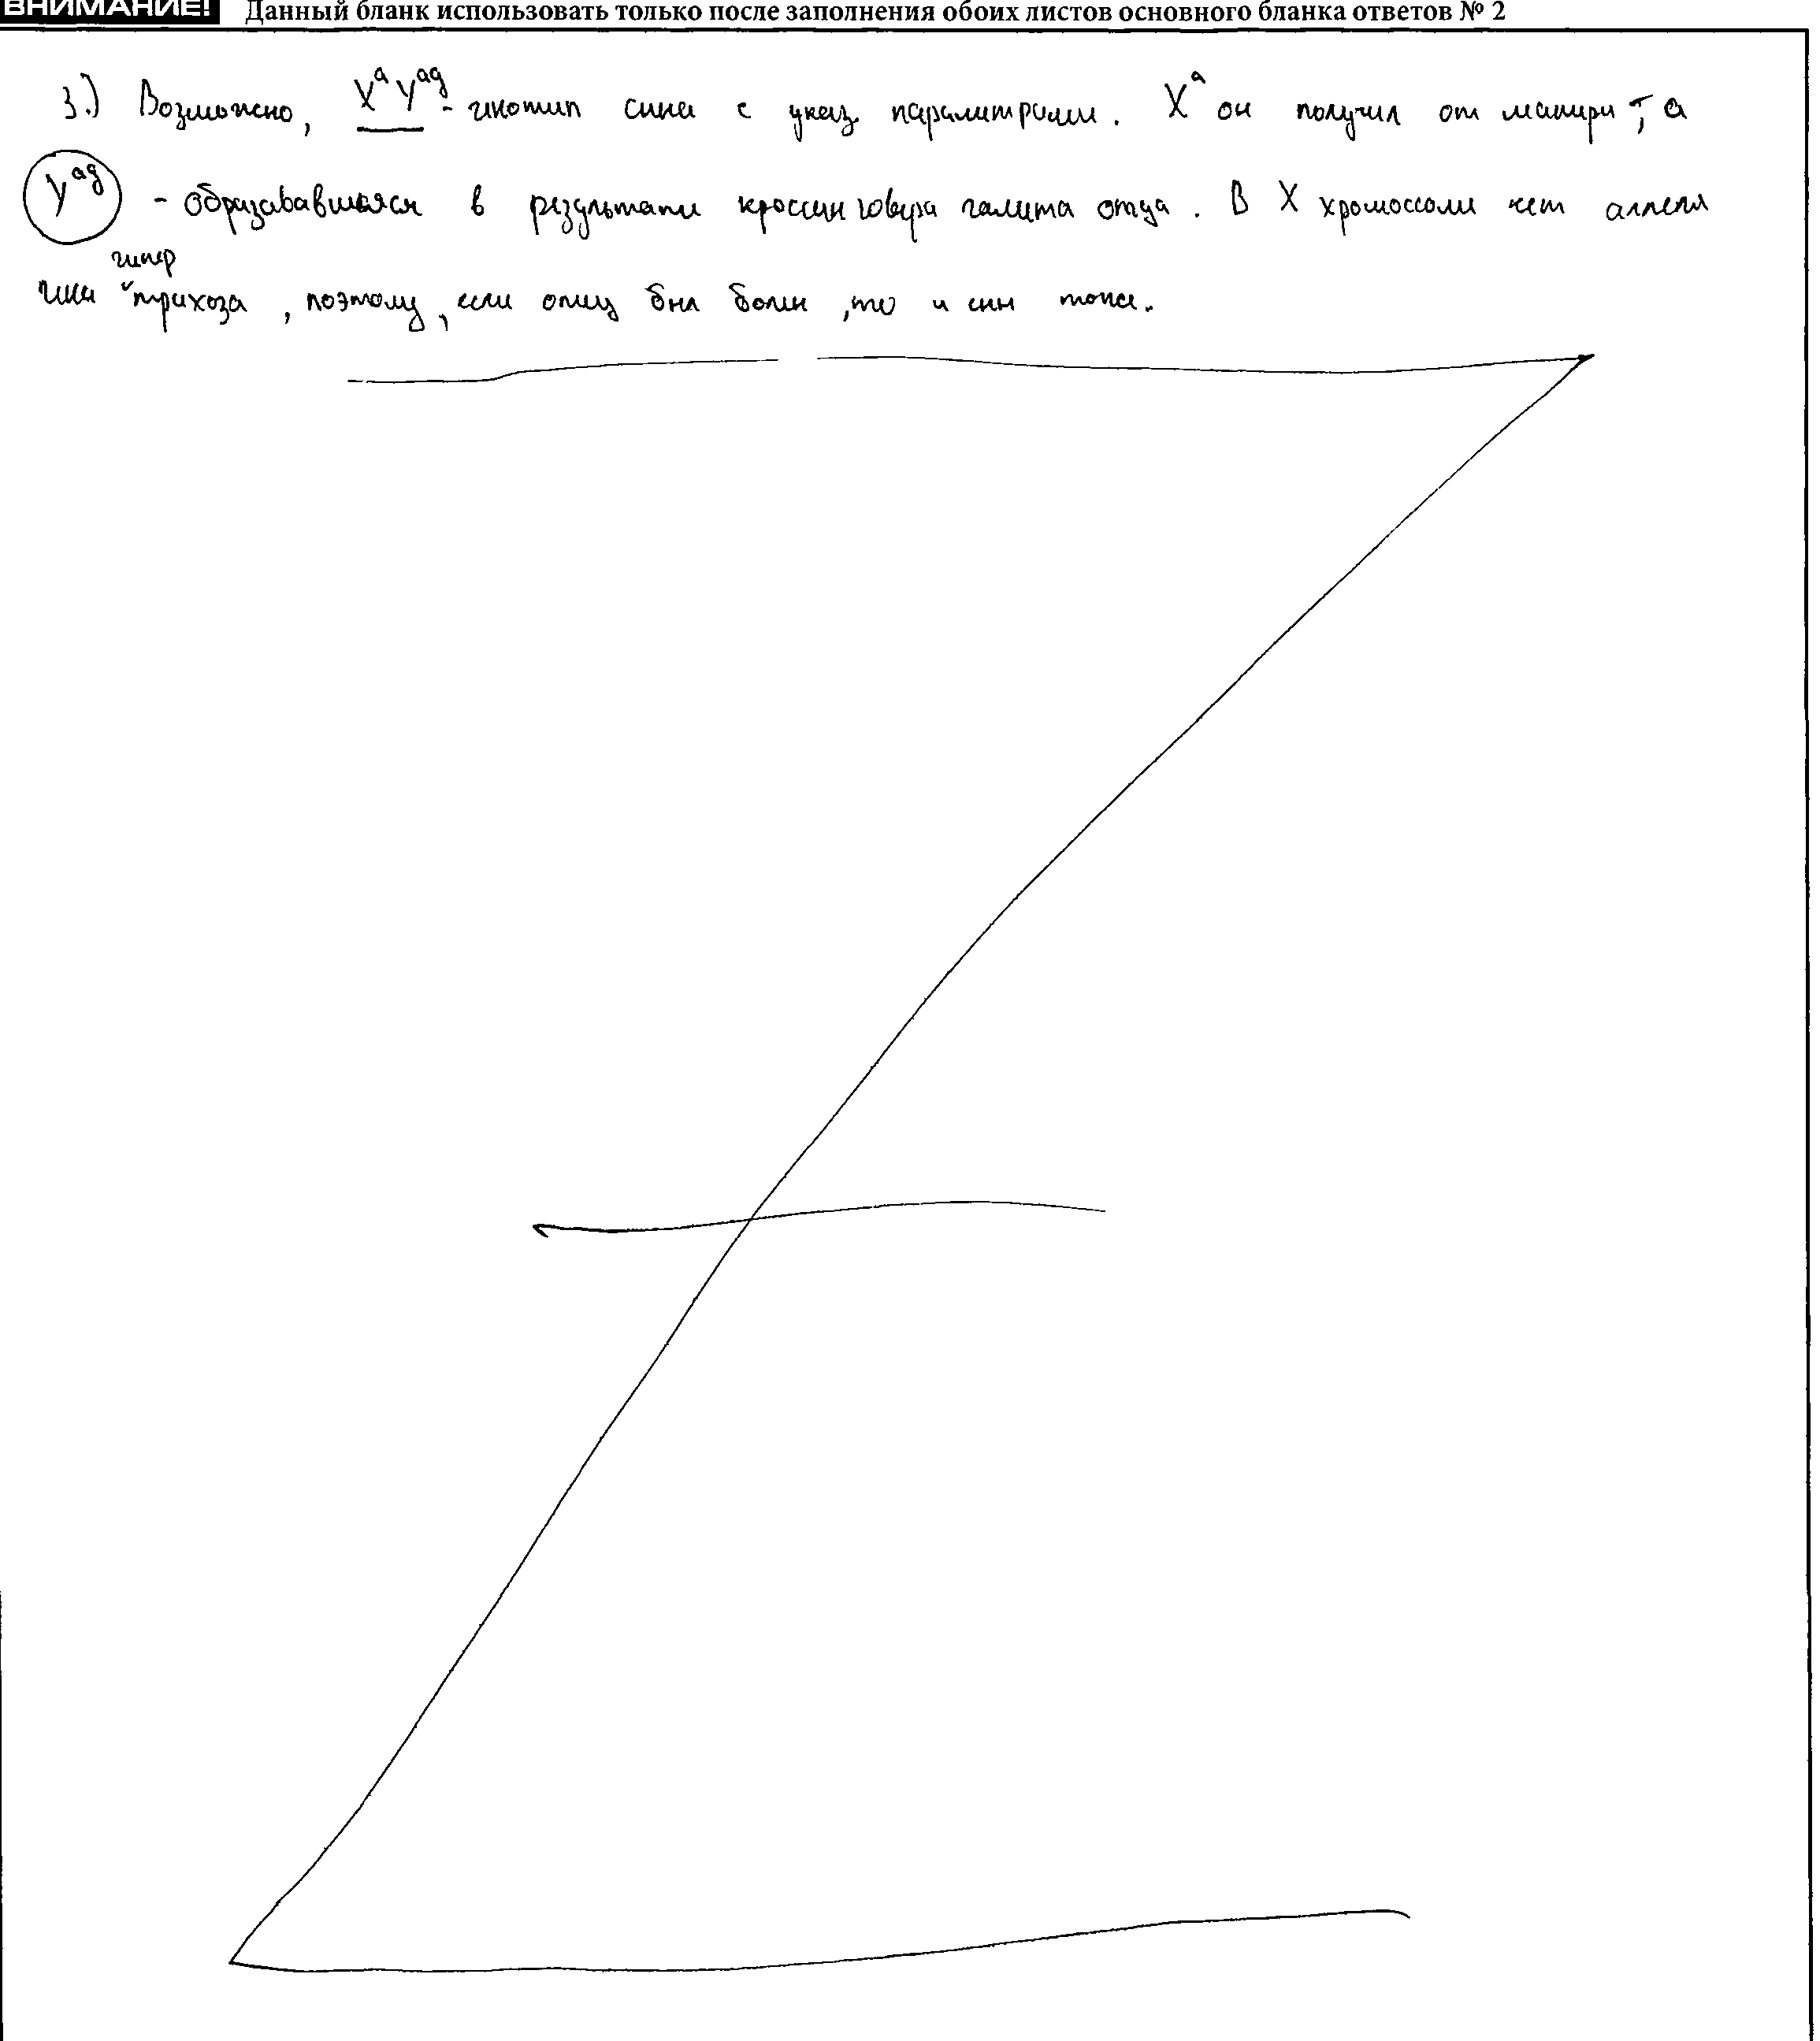 ВНИМАНИЕ! Данный бланк использовать только после заполнения обоих листов основного бланка ответов № 2
3.) Возможно, XᵃYᵃᵍ - генотип сына с указ. параметрами. Xᵃ он получил от матери, а
Yᵃᵍ - образававшаяся в результате кроссинговера гамета отца. В X хромоссоме нет аллеля
гипер
гена трихоза, поэтому, если отец был болен, то и сын тоже.